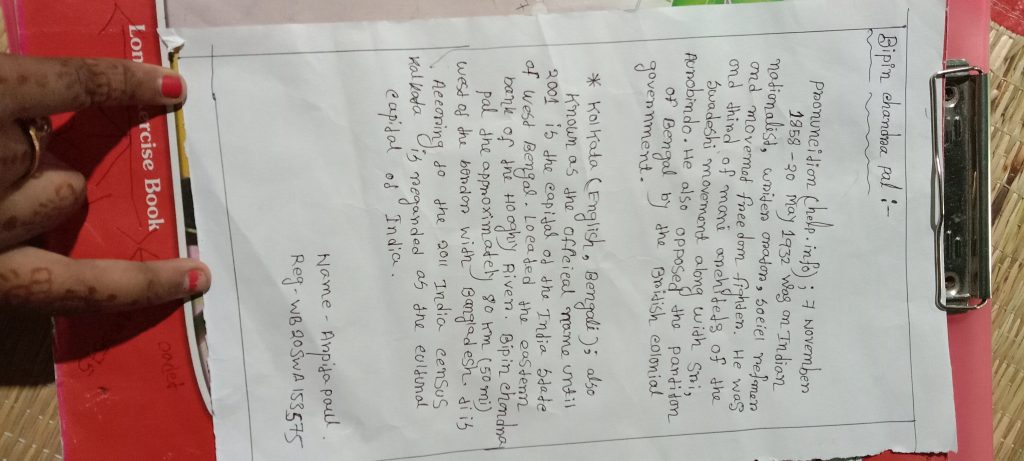 Bipin chandra pal :-
pronuncidion (help.info); 7 November
1858 - 20 May 1932 was an Indian
nationalist, writen orator, societ refrmen
and movemed freedom frihden. He was
one thind of mani
Swadeshi movement along with Sri,
Aurobindo. He also opposed the pardition
of Bengal by the Braidish colonial
government.
* Kolkata (English, Bengali); also
known as the officical name until
2001 is the capital of the India State
of West Bengal. Located the eastern
bank of the Hooghly River. Bipin chondra
pal the approximately 80 km (50 mi)
west of the bordon with Bangladesh. it is
Accroning to the 2011 India census
Kolkata is regarded as the cultural
capital of India.
Name - Arpita paul.
Reg - WB20SWA153575
Exercise Book